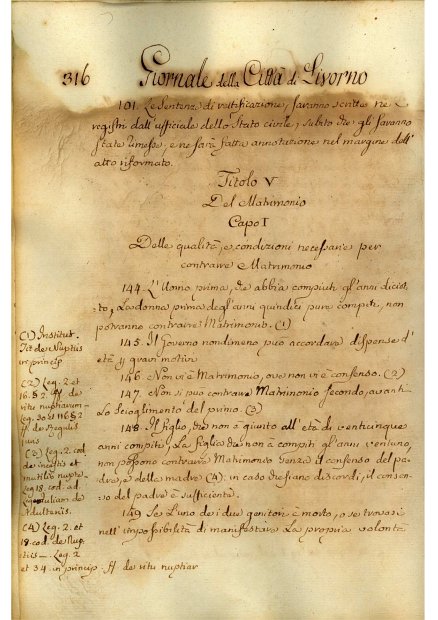 316
Giornale della Città di Livorno
101. Le Sentenze di rettificazione, saranno scritte ne
registri dall'ufficiale dello Stato civile, subito che gli saranno
state rimesse, e ne sarà fatta annotazione nel margine dell'
atto riformato.
Titolo V
Del Matrimonio
Capo I
Delle qualità, e condizioni necessarie per
contrarre Matrimonio
144. L'Uomo prima, che abbia compiuti gli anni diciot-
to, La donna prima degli anni quindici pure compiti, non
potranno contrarre Matrimonio. (1)
145. Il Governo nondimeno può accordare dispense d'
età per gravi motivi
146. Non vi è Matrimonio, ove non vi è consenso. (2)
147. Non si può contrarre Matrimonio secondo, avanti
Lo scioglimento del primo. (3)
148. Il figlio, che non è giunto all'età di venticinque
anni compiti, La figlia che non à compiti gli anni ventuno,
non possono contrarre Matrimonio senza il consenso del pa-
dre, e della madre (4): in caso che siano discordi, il consen-
so del padre è sufficiente.
149 Se L'uno de i due genitori è morto, o se trovasi
nell'impossibilità di manifestare La propria volontà
(1) Institut.
Tit de Nuptiis
in princip
(2) Leg. 2. et
16. § 2 ff de
ritu nuptiarum-
Leg. 30 et 116 § 2
ff de Regulis
Juris
(3) Leg. 2. cod.
de incestis et
inutilib nupt.
Leg 18. cod. ad
Leg Juliam de
Adulteriis.
(4) Leg. 2. et
18. cod. de Nup-
tiis — Leg. 2
et 34. in princip ff de ritu nuptiar